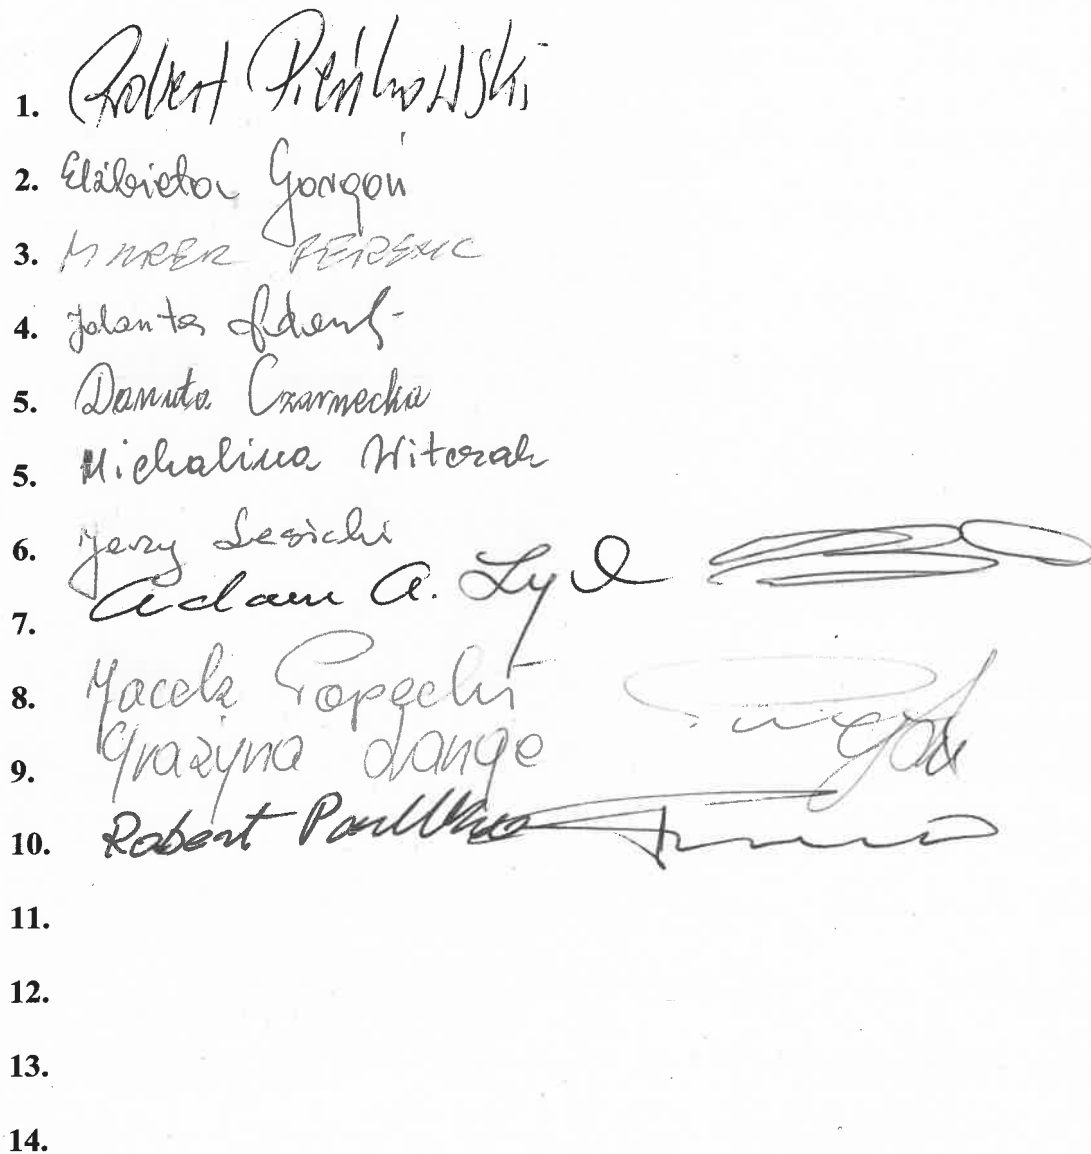 1. Robert Pieńkowski
2. Elżbieta Gorgoń
3. MAREK FERENC
4. Jolanta
5. Danuta Czarnecka
5. Michalina Witczak
6. Jerzy Lesicki
7. Adam A.
8. Jacek Popecki
9. Grażyna Lange
10. Robert
11.
12.
13.
14.